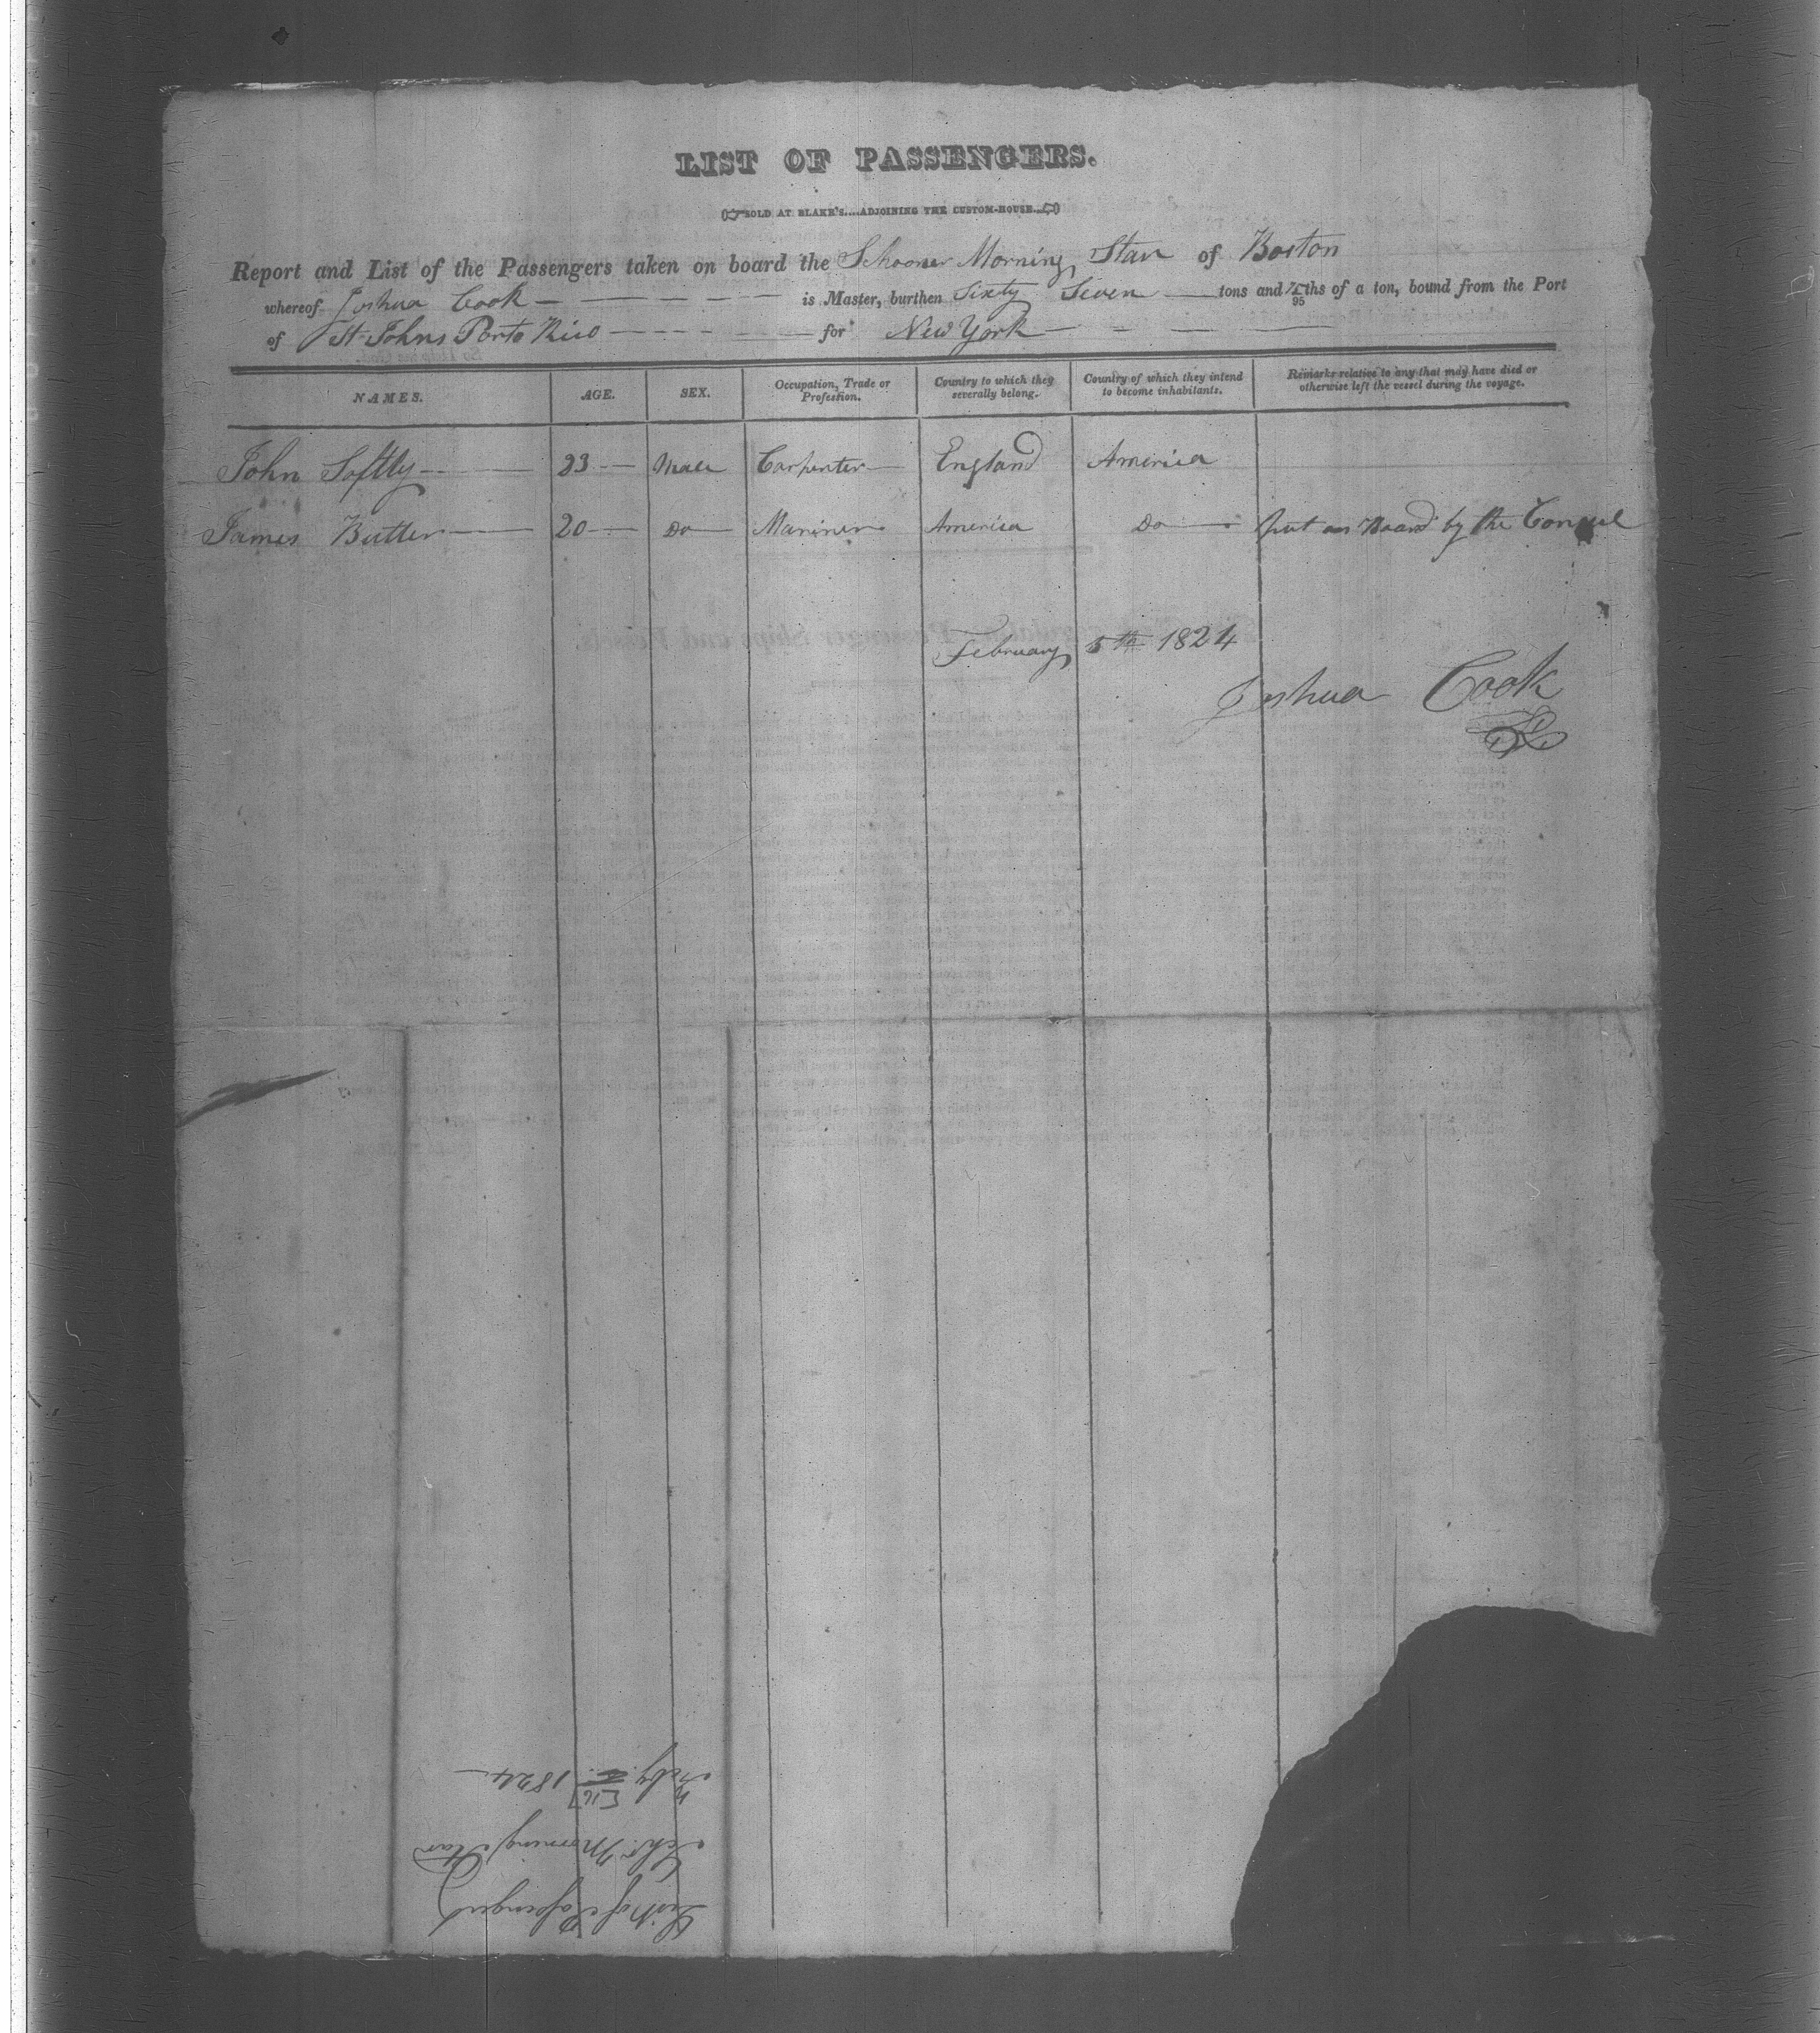 LIST OF PASSENGERS.
SOLD AT BLAKE'S....ADJOINING THE CUSTOM-HOUSE.
Report and List of the Passengers taken on board the Schooner Morning Star of Boston
whereof Joshua Cook is Master, burthen Sixty Seven tons and 95ths of a ton, bound from the Port
of St Johns Porto Rico for New York
NAMES. AGE. SEX. Occupation, Trade or Profession. Country to which they severally belong. Country of which they intend to become inhabitants. Remarks relative to any that may have died or otherwise left the vessel during the voyage.
John Softly 23 Male Carpenter England America
James Butler 20 Do Mariner America Do put on Board by the Consul
February 5th 1824
Joshua Cook
List of Passengers
Schr Morning Star
Feby 1824